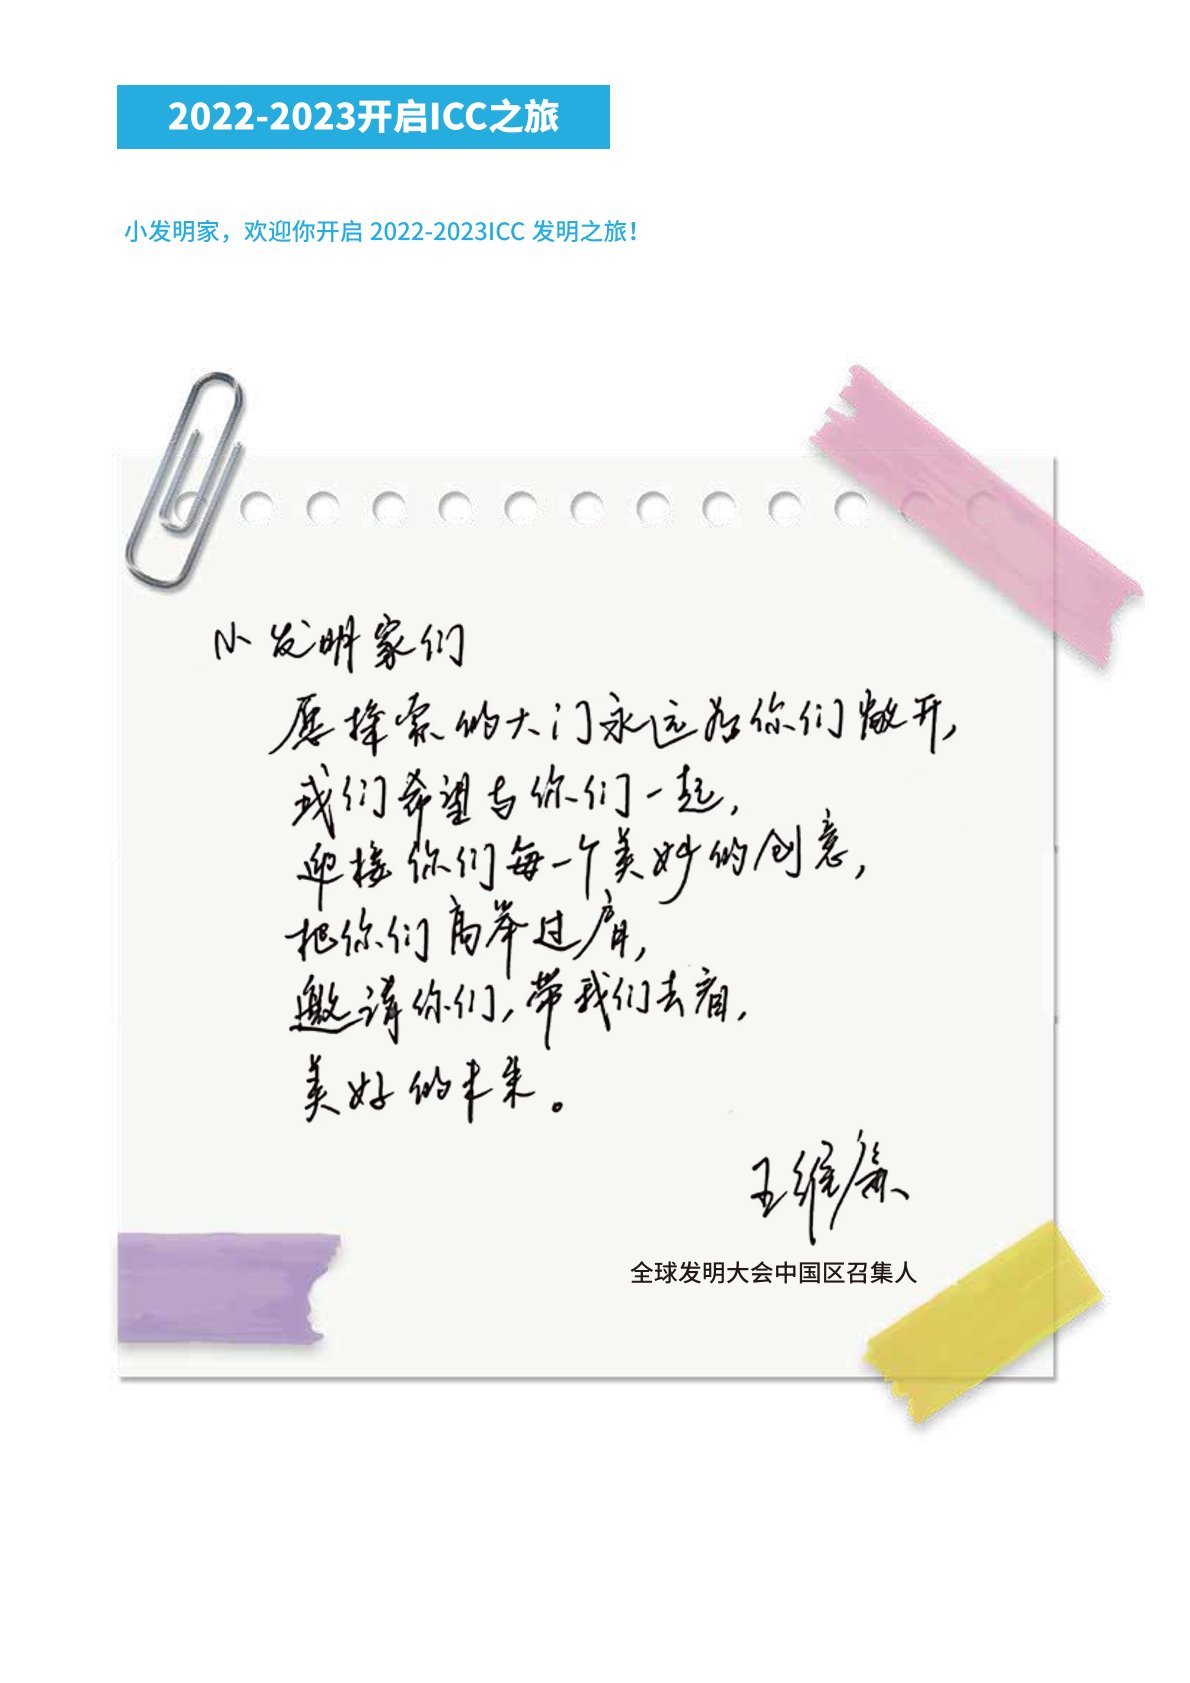 2022-2023开启ICC之旅
小发明家，欢迎你开启 2022-2023ICC 发明之旅！
小发明家们
愿探索的大门永远为你们敞开，
我们希望与你们一起，
迎接你们每一个美妙的创意，
把你们高举过肩，
邀请你们，带我们去看，
美好的未来。
王维
全球发明大会中国区召集人